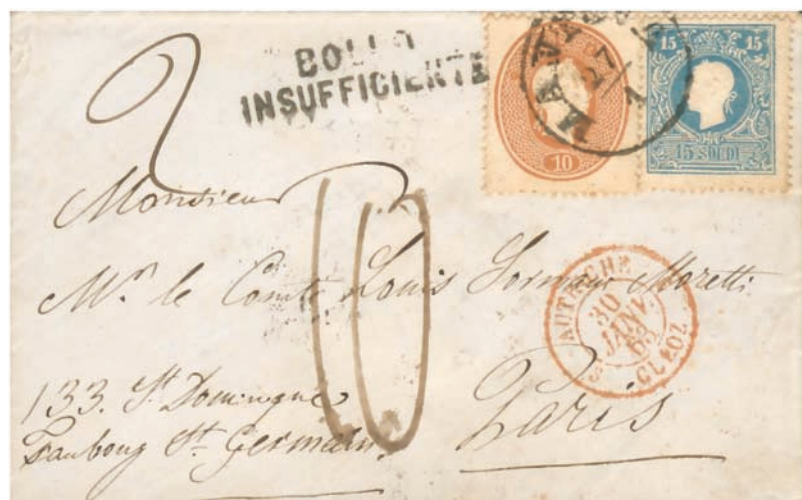 BOLLO
INSUFFICIENTE
10
15 15
15 SOLDI
2
Monsieur
10
Mr. le Comte Louis Moretti
AUTRICHE
30
JANV.
63
CULOZ
133. St. Domingue
Faubourg St. Germain.
Paris